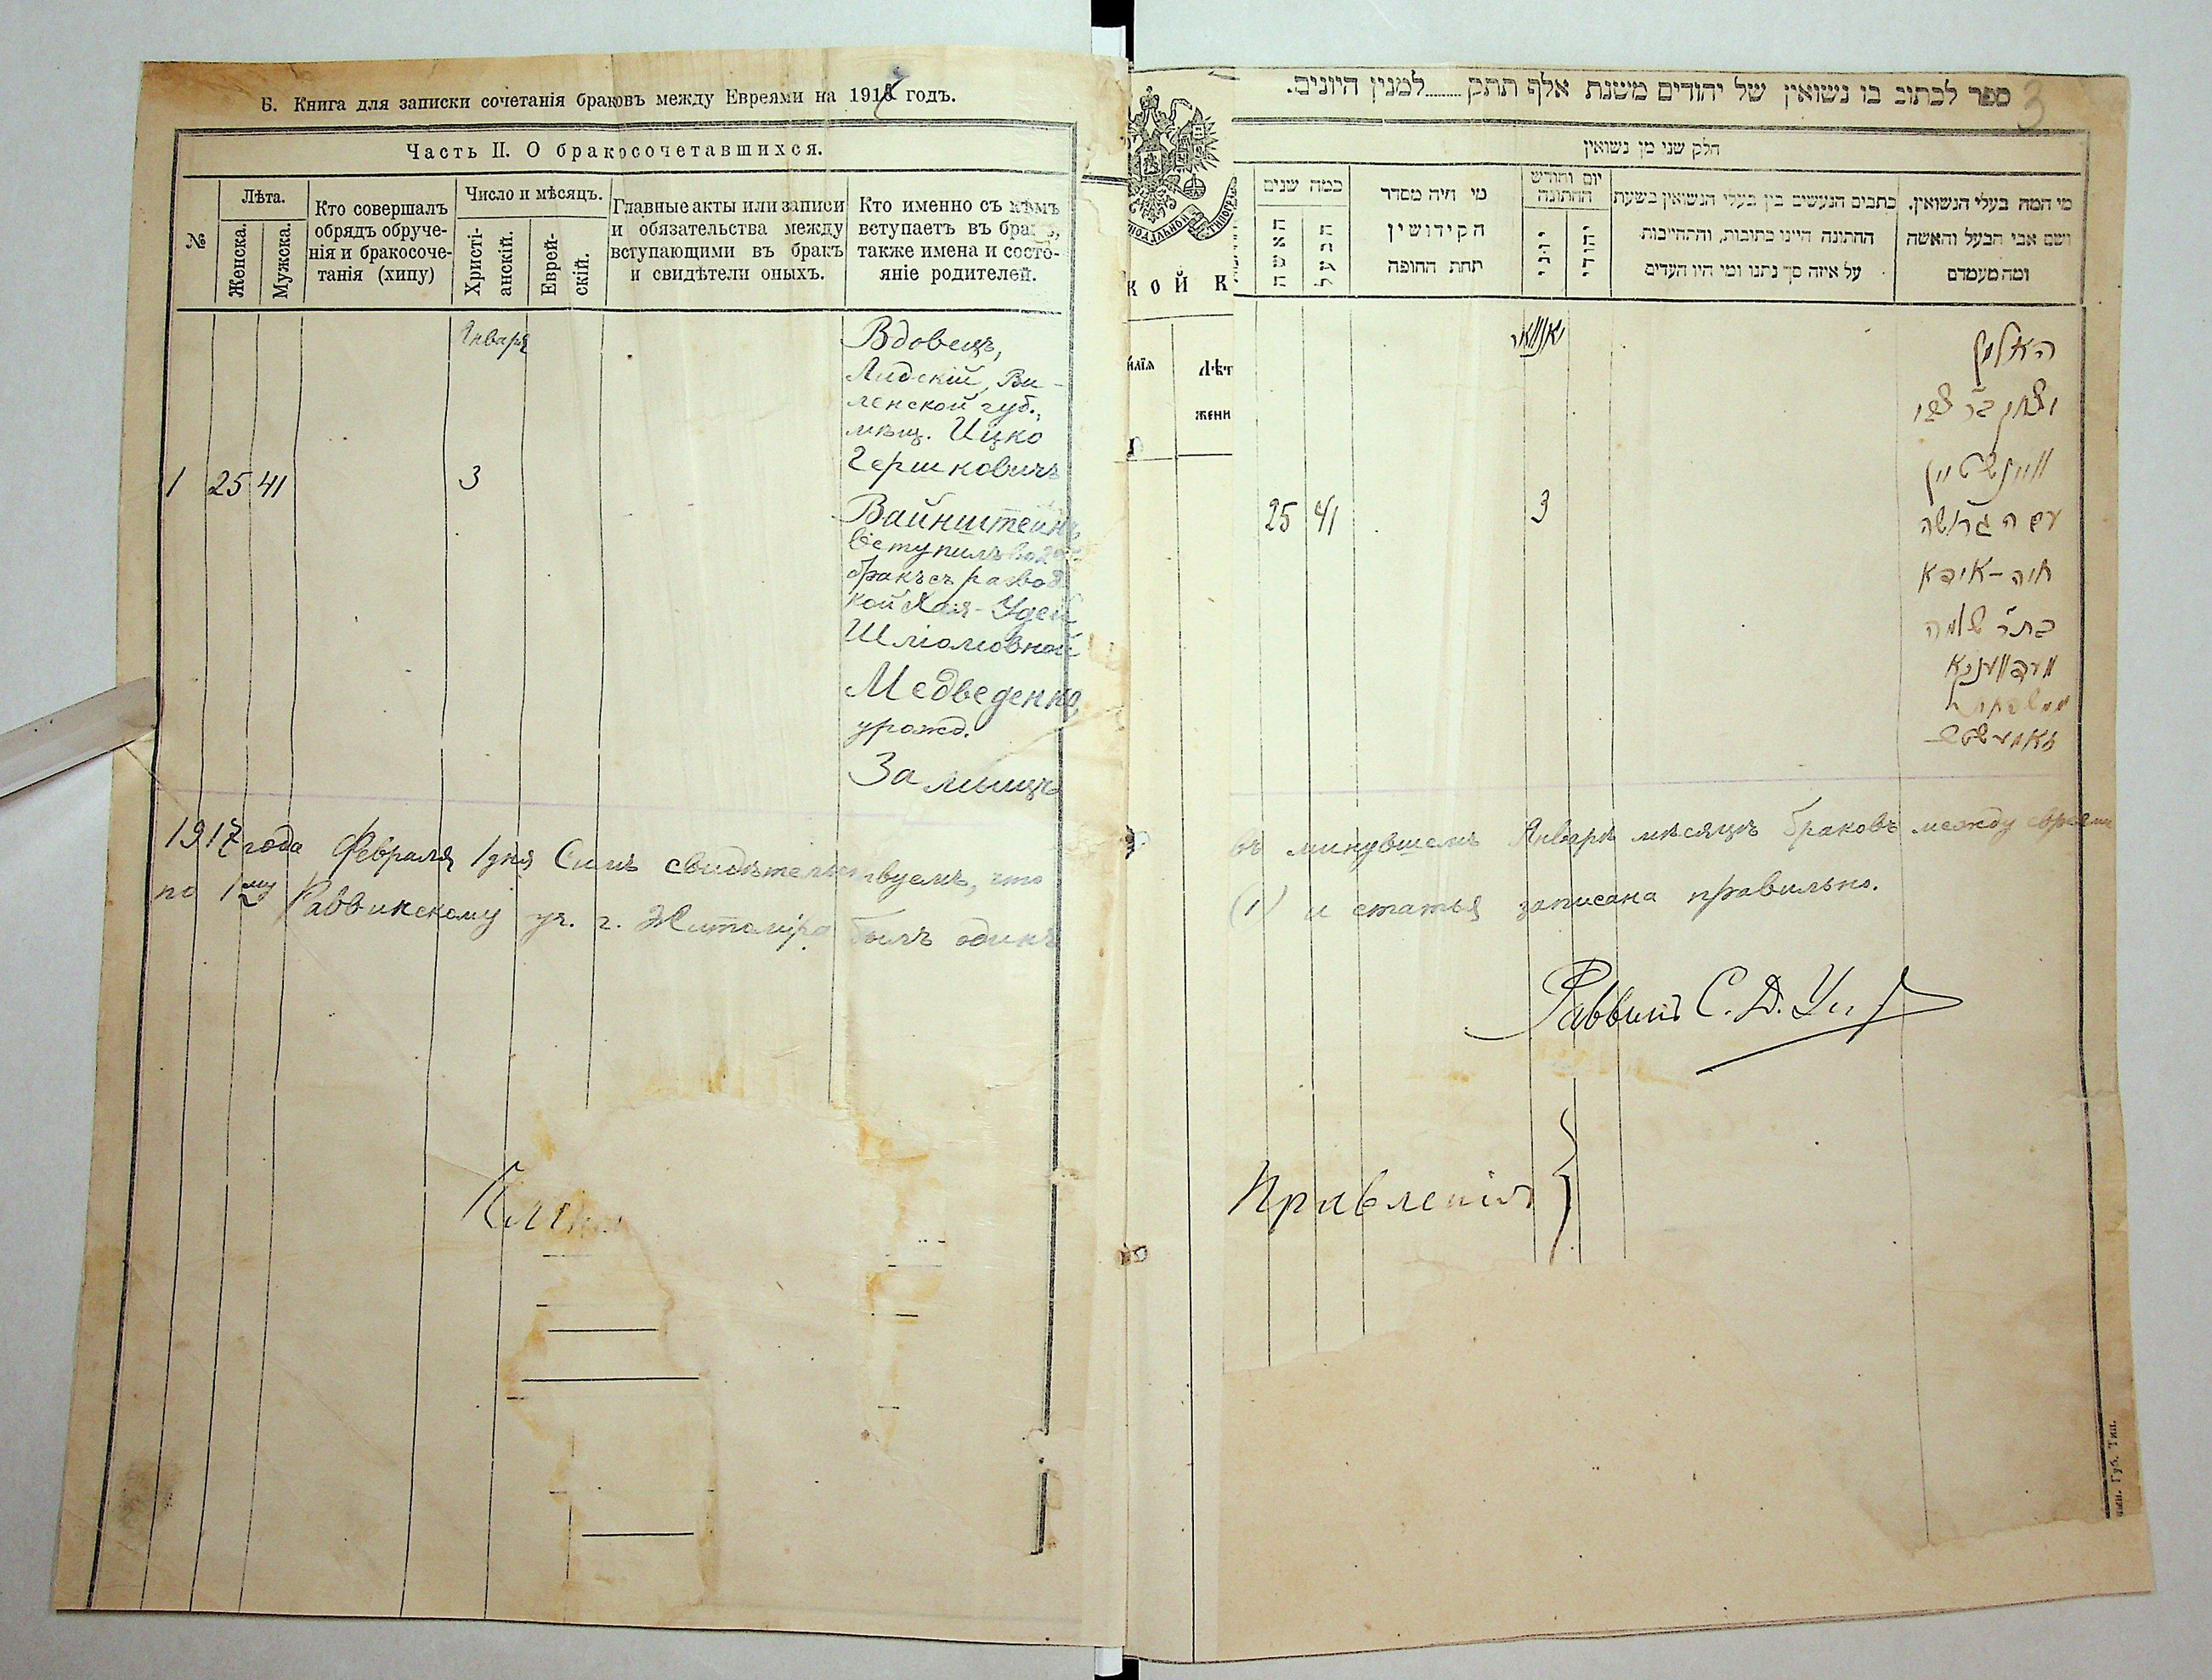 Б. Книга для записки сочетанія браковъ между Евреями на 1917 годъ.
Часть II. О бракосочетавшихся.
№
Лѣта.
Женска.
Мужска.
Кто совершалъ
обрядъ обруче-
нія и бракосоче-
танія (хипу)
Число и мѣсяцъ.
Христі-
анскій.
Еврей-
скій.
Главные акты или записи
и обязательства между
вступающими въ бракъ
и свидѣтели оныхъ.
Кто именно съ кѣмъ
вступаетъ въ бракъ,
также имена и состо-
яніе родителей.
Января
1 25 41 3
Вдовецъ,
Лидскій, Ви-
ленской губ.,
мѣщ. Ицко
Гершковичъ
Вайнштейнъ,
вступилъ во 2й
бракъ съ развод
кой Хая-Удей
Шліомовной
Медведенко,
урожд.
За
1917 года Февраля 1 дня Симъ свидѣтельствуемъ, что
по 1му Раввинскому уч. г. Житоміра былъ одинъ
ספר לכתוב בו נשואין של יהודים משנת אלף תתק........למנין היונים.
3
חלק שני מן נשואין
כמה שנים
האשה
הבעל
מי היה מסדר
הקידושין
תחת החופה
יום וחודש
החתונה
יוני
יהודי
כתבים הנעשים בין בעלי הנשואין בשעת
החתונה היינו כתובות, והתחייבות
על איזה סך נתנו ומי היו העדים
מי המה בעלי הנשואין,
ושם אבי הבעל והאשה
ומה מעמדם
КОЙ К
ИЛІЯ
ЛѢТ
ЖЕНИ
יאנוואר
25 41 3
האלמן
יצחק ב"ר צבי
וויינשטיין
עם הגרושה
חיה-אידא
בת ר' שלמה
ממשפחת
въ минувшемъ Январѣ мѣсяцѣ браковъ между евреями
(1) и статья записана правильно.
Раввинъ С. Д.
Правленія
Губ. Тип.